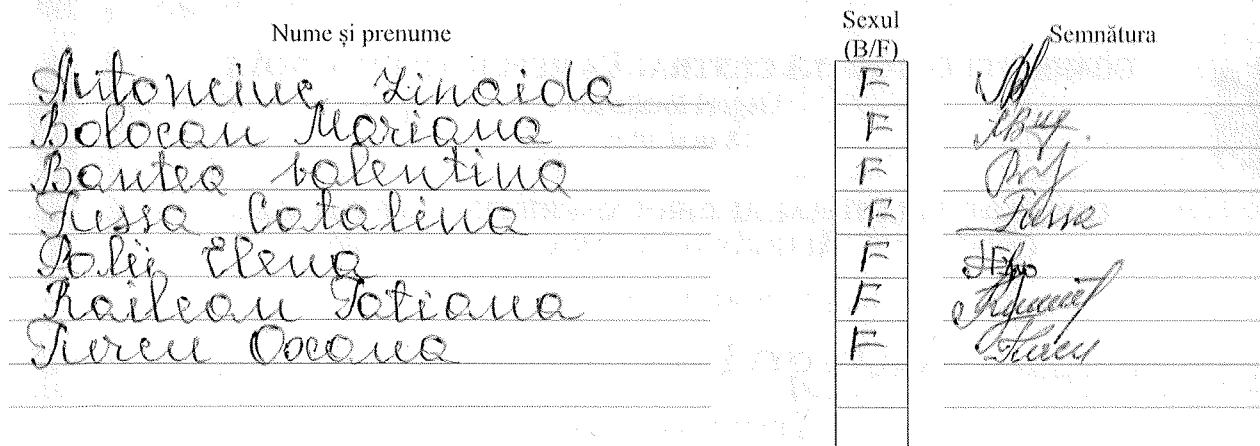 Nume și prenume Sexul (B/F) Semnătura
Antonciuc Zinaida F
Bolocan Mariana F
Bantea Valentina F
Tussa Catalina F Tussa
Palii Elena F
Raileau Tatiana F
Turcu Oxana F Turcu